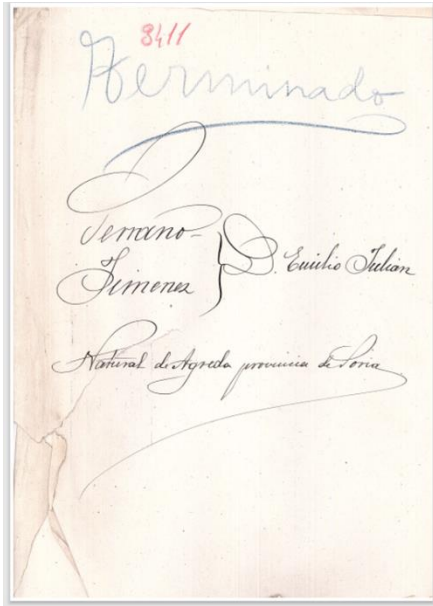 8411
Terminado
Serrano-
Jimenez } D. Emilio Julian
Natural de Agreda provincia de Soria